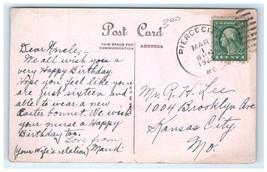 Post Card
THIS SPACE FOR
COMMUNICATION
ADDRESS
300
PIERCE CI
MAR
1
MO.
Dear Uncle,
We all wish you a
very Happy Birthday.
Hope you feel like you
are just sixteen and
able to wear a new
Easter bonnet. We all
wish your a Happy
Birthday too.
Love from
(Your Wife's relation) Maud
Mr. R. H. Lee
1004 Brooklyn Ave
Kansas City.
Mo.